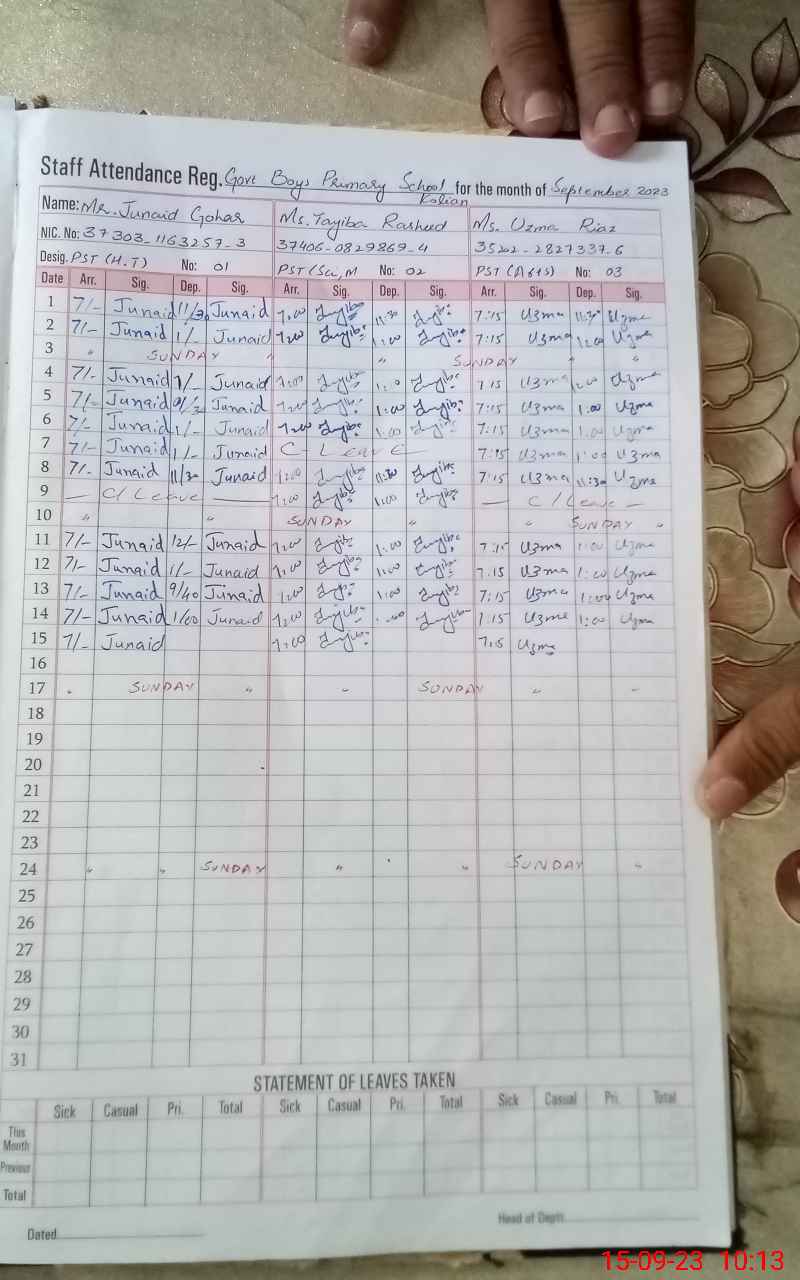 Staff Attendance Reg. Govt Boys Primary School Kalian for the month of September 2023
Name: Mr. Junaid Gohar Ms. Tayiba Rasheed Ms. Uzma Riaz
NIC. No: 37303-1163257-3 37406-0829869-4 35202-2827337-6
Desig. PST (H.T) No: 01 PST (Sci, M No: 02 PST (Arts) No: 03
Date Arr. Sig. Dep. Sig. Arr. Sig. Dep. Sig. Arr. Sig. Dep. Sig.
1 7/- Junaid 11/30 Junaid 7:00 11:30 7:15 Uzma 11:30 Uzma
2 7/- Junaid 1/- Junaid 7:00 1:00 7:15 Uzma 1:00 Uzma
3 " SUNDAY " " SUNDAY " "
4 7/- Junaid 1/- Junaid 7:00 1:00 7:15 Uzma 1:00 Uzma
5 7/- Junaid Junaid 7:00 1:00 7:15 Uzma 1:00 Uzma
6 7/- Junaid 1/- Junaid 7:00 1:00 7:15 Uzma 1:00 Uzma
7 7/- Junaid 1/- Junaid C- Leave 7:15 Uzma 1:00 Uzma
8 7/- Junaid 11/30 Junaid 7:00 11:30 7:15 Uzma 11:30 Uzma
9 — C/ Leave — 7:00 1:00 — C/Leave —
10 " " SUNDAY " " SUNDAY "
11 7/- Junaid 12/- Junaid 7:00 1:00 7:15 Uzma 1:00 Uzma
12 7/- Junaid 1/- Junaid 7:00 1:00 7:15 Uzma 1:00 Uzma
13 7/- Junaid 9/40 Junaid 7:00 1:00 7:15 Uzma 1:00 Uzma
14 7/- Junaid 1/00 Junaid 7:00 7:15 Uzma 1:00 Uzma
15 7/- Junaid 7:00 7:15 Uzma
16
17 " SUNDAY " " SUNDAY " "
18
19
20
21
22
23
24 " " SUNDAY " " SUNDAY "
25
26
27
28
29
30
31
STATEMENT OF LEAVES TAKEN
Sick Casual Pri. Total Sick Casual Pri. Total Sick Casual Pri. Total
This Month
Previous
Total
Dated
Head of Deptt.
15-09-23 10:13